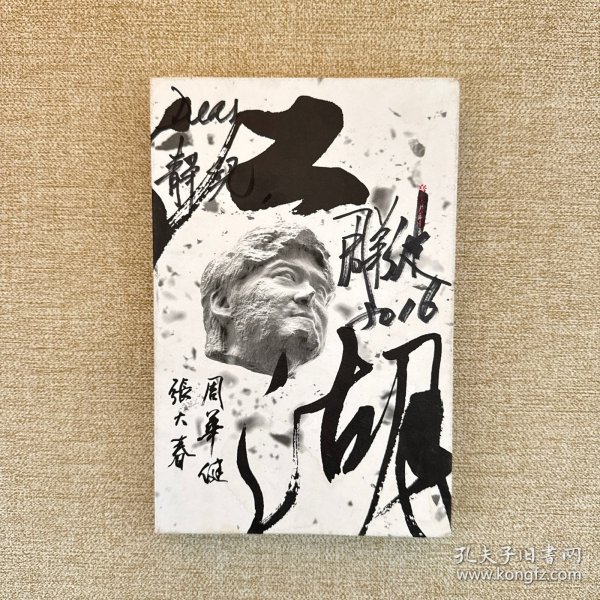 Dear
靜
江
湖
2016
周華健
張大春
孔夫子旧书网
www.kongfz.com